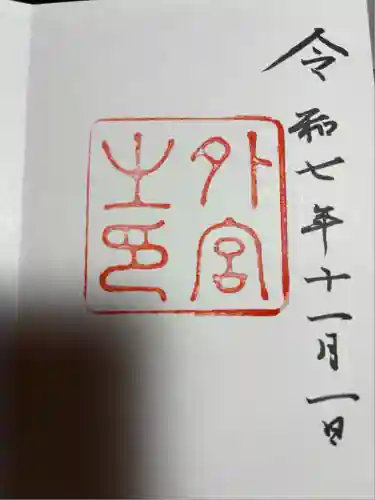 令和七年十一月一日
外宮
之印